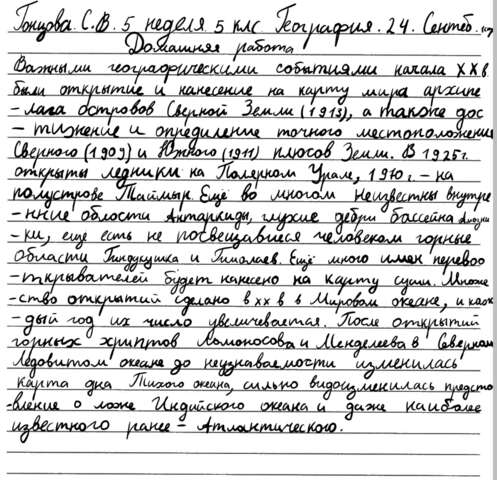 Гонцова. С.В. 5 неделя 5 клс. География. 24. Сентеб.
Домашняя работа
Важными географическими событиями начала XX в.
были открытие и нанесение на карту мира архипе
-лага островов Сверной Земли (1913), а также дос
-тижение и определение точного местоположения
Сверного (1909) и Южного (1911) плюсов Земли. В 1925г.
открыты ледники на Полярном Урале, 1910г. - на
полустрове Таймыр. Ещё во многом неизвестны внутре
-нние области Антаркиды, глухие дебри бассейна Амазни
-ки, еще есть не посвещавшиеся человеком горные
области Гиндукушика и Гималаев. Ещё много имен перевоо
-ткрывателей будет нанесено на карту суши. Множе
-ство открытий сделано в xx в в Мировом океане, и каж
-дый год их число увеличевается. После открытий
горных хриптов Ломоносова и Менделеева в Северном
Ледовитом океане до неузнаваемости изменилась
карта дна Тихого океана, сильно видоизменилась предста
-вление о ложе Индийского океана и даже наиболее
известного ранее - Атлантического.